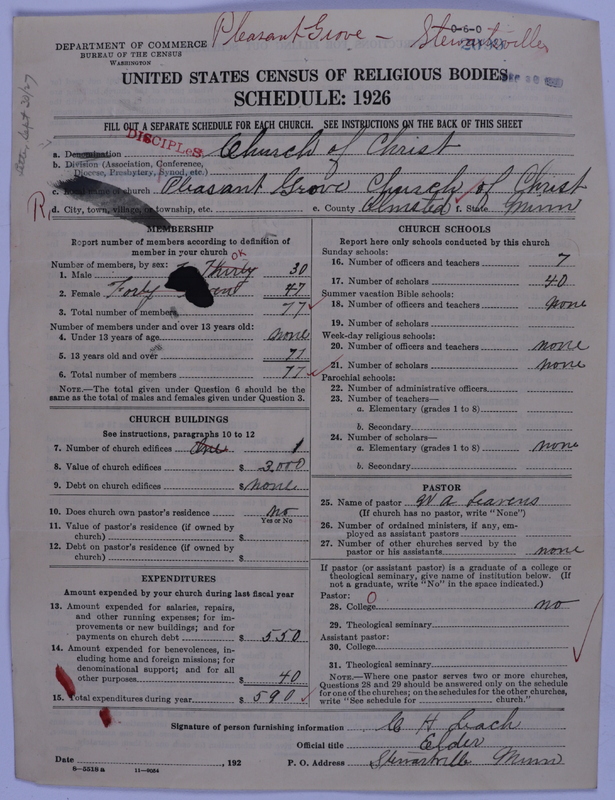 Pleasant Grove - Stewartville
0-6-0
DEPARTMENT OF COMMERCE
BUREAU OF THE CENSUS
WASHINGTON
UNITED STATES CENSUS OF RELIGIOUS BODIES
SCHEDULE: 1926
FILL OUT A SEPARATE SCHEDULE FOR EACH CHURCH. SEE INSTRUCTIONS ON THE BACK OF THIS SHEET
DISCIPLES
a. Denomination Church of Christ
b. Division (Association, Conference, Diocese, Presbytery, Synod, etc.)
name of church Pleasant Grove Church of Christ
R.
d. City, town, village, or township, etc. e. County Olmsted f. State Minn
MEMBERSHIP
Report number of members according to definition of member in your church
Number of members, by sex: OK
1. Male Thirty 30
2. Female Forty 47
3. Total number of members 77
Number of members under and over 13 years old:
4. Under 13 years of age none
5. 13 years old and over 77
6. Total number of members 77
NOTE.—The total given under Question 6 should be the same as the total of males and females given under Question 3.
CHURCH BUILDINGS
See instructions, paragraphs 10 to 12
7. Number of church edifices One 1
8. Value of church edifices $ 3,000
9. Debt on church edifices $ none
10. Does church own pastor's residence No
Yes or No
11. Value of pastor's residence (if owned by church) $
12. Debt on pastor's residence (if owned by church) $
EXPENDITURES
Amount expended by your church during last fiscal year
13. Amount expended for salaries, repairs, and other running expenses; for improvements or new buildings; and for payments on church debt $ 550
14. Amount expended for benevolences, including home and foreign missions; for denominational support; and for all other purposes $ 40
15. Total expenditures during year $ 590
CHURCH SCHOOLS
Report here only schools conducted by this church
Sunday schools:
16. Number of officers and teachers 7
17. Number of scholars 40
Summer vacation Bible schools:
18. Number of officers and teachers none
19. Number of scholars
Week-day religious schools:
20. Number of officers and teachers none
21. Number of scholars none
Parochial schools:
22. Number of administrative officers
23. Number of teachers—
a. Elementary (grades 1 to 8)
b. Secondary
24. Number of scholars—
a. Elementary (grades 1 to 8) none
b. Secondary
PASTOR
25. Name of pastor W A Leavens
(If church has no pastor, write "None")
26. Number of ordained ministers, if any, employed as assistant pastors
27. Number of other churches served by the pastor or his assistants none
If pastor (or assistant pastor) is a graduate of a college or theological seminary, give name of institution below. (If not a graduate, write "No" in the space indicated.)
Pastor:
28. College no
29. Theological seminary
Assistant pastor:
30. College
31. Theological seminary
NOTE.—Where one pastor serves two or more churches, Questions 28 and 29 should be answered only on the schedule for one of the churches; on the schedules for the other churches, write "See schedule for church."
Signature of person furnishing information C H Leach
Official title Elder
Date , 192 P. O. Address Stewartville Minn
8-5518 a 11-9064